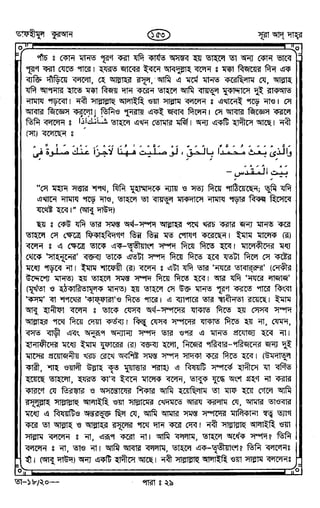 তাফহীমুল কুরআন
১৫৩
সূরা আদ্ দাহর
পাঁচ ঃ কোন মানত পূরণ করা যদি কার্যত অসম্ভব হয় তাহলে তা অন্য কোন ভাবে
পূরণ করা যেতে পারে। হযরত জাবের ইবনে আবদুল্লাহ বলেন ঃ মক্কা বিজয়ের দিন এক
ব্যক্তি দাঁড়িয়ে বললো, হে আল্লাহর রসূল, আমি এ মর্মে মানত করেছিলাম যে, আল্লাহ
যদি আপনার হাতে মক্কা বিজয় দান করেন তাহলে আমি বায়তুল মুকাদ্দাসে দুই রাকআত
নামায পড়বো। নবী সাল্লাল্লাহু আলাইহি ওয়া সাল্লাম বললেন ঃ এখানেই পড়ে নাও। সে
আবার জিজ্ঞেস করলো। তিনিও পুনরায় একই জবাব দিলেন। সে আবার জিজ্ঞেস করলে
তিনি বললেন ঃ شأنك إذا তাহলে এখন তোমার মর্জি। অন্য একটি হাদীসে আছে। নবী
(সা) বলেছেন ঃ
والذي بعث محمدا بالحق ، لو صليت ههنا لاجزا عنك صلوة في
بيت المقدس -
"সে মহান সত্তার শপথ, যিনি মুহাম্মাদকে ন্যায় ও সত্য দিয়ে পাঠিয়েছেন; তুমি যদি
এখানে নামায পড়ে নাও, তাহলে তা বায়তুল মাকদাসে নামায পড়ার বিকল্প হিসেবে
যথেষ্ট হবে।" (আবু দাউদ)
ছয় ঃ কেউ যদি তার সমস্ত অর্থ-সম্পদ আল্লাহর পথে খরচ করার জন্য মানত করে
তাহলে সে ক্ষেত্রে ফিকাহবিদগণ ভিন্ন ভিন্ন মত পোষণ করেছেন। ইমাম মালেক (র)
বলেন ঃ এ ক্ষেত্রে তাকে এক-তৃতীয়াংশ সম্পদ দিয়ে দিতে হবে। মালেকীদের মধ্য
থেকে 'সাহনূনের' বক্তব্য তাকে এতটা সম্পদ দিয়ে দিতে হবে যতটা দিলে সে কষ্টের
মধ্যে পড়বে না। ইমাম শাফেয়ী (র) বলেন ঃ এটা যদি তার 'নযরে তাবাররুর' (নেকীর
উদ্দেশ্যে মানত) হয় তাহলে সমস্ত সম্পদ দিয়ে দিতে হবে। আর যদি 'নযরে লাজাজ'
(মূর্খতা ও হঠকারিতামূলক মানত) হয় তাহলে সে উক্ত মানত পূরণ করতে পারে কিংবা
'কসম' বা শপথের 'কাফ্ফারা'ও দিতে পারে। এ ব্যাপারে তার স্বাধীনতা রয়েছে। ইমাম
আবু হানীফা বলেন ঃ তাকে যেসব অর্থ-সম্পদের যাকাত দিতে হয় সেসব সম্পদ
আল্লাহর পথে দিয়ে দেয়া কর্তব্য। কিন্তু যেসব সম্পদের যাকাত দিতে হয় না, যেমন,
বসত বাড়ী এবং অনুরূপ অন্যান্য সম্পদ তার ওপর এ মানত প্রযোজ্য হবে না।
হানাফীদের মধ্যে ইমাম যুফারের (র) বক্তব্য হলো, নিজের পরিবার-পরিজনের জন্য দুই
মাসের প্রয়োজনীয় খরচ রেখে অবশিষ্ট সমস্ত সম্পদ সাদকা করে দিতে হবে। (উমদাতুল
কারী, শাহ ওয়ালী উল্লাহ কৃত মুয়াত্তার শরাহ) এ বিষয়টি সম্পর্কে হাদীসে যা বর্ণিত
হয়েছে তাহলো, হযরত কা'ব ইবনে মালেক বলেন, তাবুক যুদ্ধে অংশ গ্রহণ না করার
কারণে যে তিরস্কার ও অসন্তোষের শিকার আমি হয়েছিলাম তা মাফ হয়ে গেলে আমি
রসূলুল্লাহ সাল্লাল্লাহু আলাইহি ওয়া সাল্লামের খেদমতে আরয করলাম যে, আমার তাওবার
মধ্যে এ বিষয়টিও অন্তরভুক্ত ছিল যে, আমি আমার সমস্ত সম্পদের মালিকানা স্বত্ব ত্যাগ
করে তা আল্লাহ ও আল্লাহর রসূলের পথে দান করে দেব। নবী সাল্লাল্লাহু আলাইহি ওয়া
সাল্লাম বললেন ঃ না, এরূপ করো না। আমি বললাম, তাহলে অর্ধেক সম্পদ? তিনি
বললেন ঃ না, তাও না। আমি আবার বললাম, তাহলে এক-তৃতীয়াংশ? তিনি বললেন ঃ
হাঁ। (আবু দাউদ) অন্য একটি হাদীসে আছে। নবী সাল্লাল্লাহু আলাইহি ওয়া সাল্লাম বললেন ঃ
তা-১৮/২০—
পারা ঃ ২৯